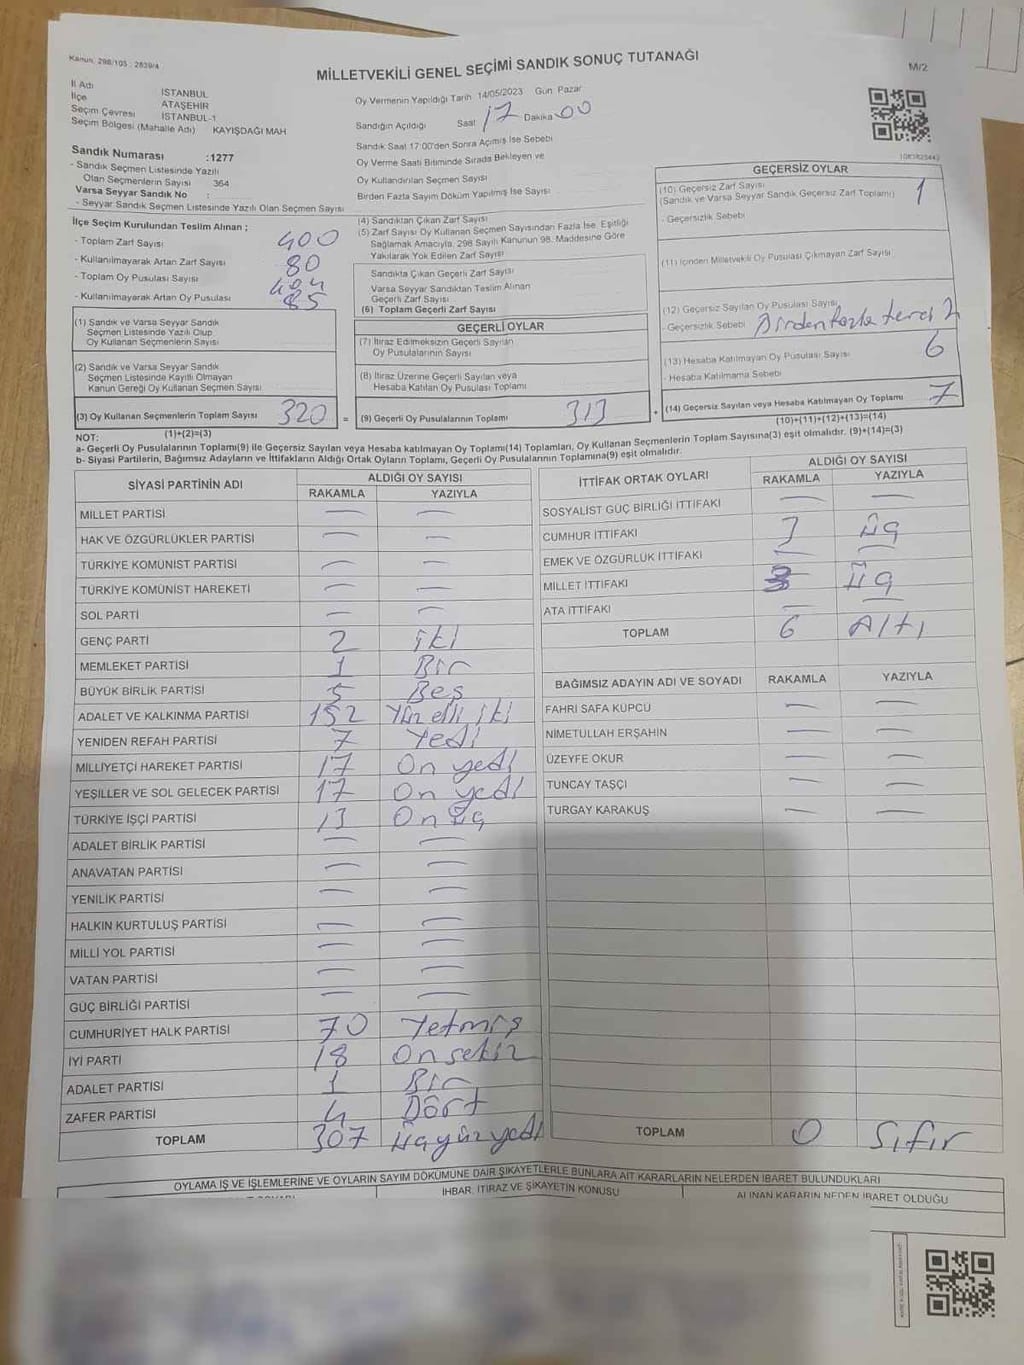 Kanun, 298/105 : 2839/4
MİLLETVEKİLİ GENEL SEÇİMİ SANDIK SONUÇ TUTANAĞI
M/2
İl Adı İSTANBUL
İlçe ATAŞEHİR
Seçim Çevresi İSTANBUL-1
Seçim Bölgesi (Mahalle Adı) KAYIŞDAĞI MAH
Oy Vermenin Yapıldığı Tarih 14/05/2023 Gün Pazar
Sandığın Açıldığı Saat 17 Dakika 00
Sandık Saat 17:00'den Sonra Açılmış İse Sebebi
Oy Verme Saati Bitiminde Sırada Bekleyen ve
Oy Kullandırılan Seçmen Sayısı
Birden Fazla Sayım Döküm Yapılmış İse Sayısı
Sandık Numarası :1277
- Sandık Seçmen Listesinde Yazılı
Olan Seçmenlerin Sayısı 364
Varsa Seyyar Sandık No :
- Seyyar Sandık Seçmen Listesinde Yazılı Olan Seçmen Sayısı
İlçe Seçim Kurulundan Teslim Alınan ;
- Toplam Zarf Sayısı 400
- Kullanılmayarak Artan Zarf Sayısı 80
- Toplam Oy Pusulası Sayısı 404
- Kullanılmayarak Artan Oy Pusulası 85
(1) Sandık ve Varsa Seyyar Sandık
Seçmen Listesinde Yazılı Olup
Oy Kullanan Seçmenlerin Sayısı
(2) Sandık ve Varsa Seyyar Sandık
Seçmen Listesinde Kayıtlı Olmayan
Kanun Gereği Oy Kullanan Seçmen Sayısı
(3) Oy Kullanan Seçmenlerin Toplam Sayısı 320 =
(1)+(2)=(3)
(4) Sandıktan Çıkan Zarf Sayısı
(5) Zarf Sayısı Oy Kullanan Seçmen Sayısından Fazla İse, Eşitliği
Sağlamak Amacıyla, 298 Sayılı Kanunun 98. Maddesine Göre
Yakılarak Yok Edilen Zarf Sayısı
Sandıkta Çıkan Geçerli Zarf Sayısı
Varsa Seyyar Sandıktan Teslim Alınan
Geçerli Zarf Sayısı
(6) Toplam Geçerli Zarf Sayısı
GEÇERLİ OYLAR
(7) İtiraz Edilmeksizin Geçerli Sayılan
Oy Pusulalarının Sayısı
(8) İtiraz Üzerine Geçerli Sayılan veya
Hesaba Katılan Oy Pusulası Toplamı
(9) Geçerli Oy Pusulalarının Toplamı 313 +
GEÇERSİZ OYLAR
(10) Geçersiz Zarf Sayısı
(Sandık ve Varsa Seyyar Sandık Geçersiz Zarf Toplamı) 1
- Geçersizlik Sebebi
(11) İçinden Milletvekili Oy Pusulası Çıkmayan Zarf Sayısı
(12) Geçersiz Sayılan Oy Pusulası Sayısı
- Geçersizlik Sebebi Birden fazla terci
(13) Hesaba Katılmayan Oy Pusulası Sayısı 6
- Hesaba Katılmama Sebebi
(14) Geçersiz Sayılan veya Hesaba Katılmayan Oy Toplamı 7
(10)+(11)+(12)+(13)=(14)
NOT:
a- Geçerli Oy Pusulalarının Toplamı(9) ile Geçersiz Sayılan veya Hesaba katılmayan Oy Toplamı(14) Toplamları, Oy Kullanan Seçmenlerin Toplam Sayısına(3) eşit olmalıdır. (9)+(14)=(3)
b- Siyasi Partilerin, Bağımsız Adayların ve İttifakların Aldığı Ortak Oyların Toplamı, Geçerli Oy Pusulalarının Toplamına(9) eşit olmalıdır.
SİYASİ PARTİNİN ADI ALDIĞI OY SAYISI
RAKAMLA YAZIYLA
MİLLET PARTİSİ — —
HAK VE ÖZGÜRLÜKLER PARTİSİ — —
TÜRKİYE KOMÜNİST PARTİSİ — —
TÜRKİYE KOMÜNİST HAREKETİ — —
SOL PARTİ — —
GENÇ PARTİ 2 iki
MEMLEKET PARTİSİ 1 Bir
BÜYÜK BİRLİK PARTİSİ 5 Beş
ADALET VE KALKINMA PARTİSİ 152 Yüz elli iki
YENİDEN REFAH PARTİSİ 7 Yedi
MİLLİYETÇİ HAREKET PARTİSİ 17 On yedi
YEŞİLLER VE SOL GELECEK PARTİSİ 17 On yedi
TÜRKİYE İŞÇİ PARTİSİ 13 On üç
ADALET BİRLİK PARTİSİ — —
ANAVATAN PARTİSİ — —
YENİLİK PARTİSİ — —
HALKIN KURTULUŞ PARTİSİ — —
MİLLİ YOL PARTİSİ — —
VATAN PARTİSİ — —
GÜÇ BİRLİĞİ PARTİSİ — —
CUMHURİYET HALK PARTİSİ 70 Yetmiş
İYİ PARTİ 18 On sekiz
ADALET PARTİSİ 1 Bir
ZAFER PARTİSİ 4 Dört
TOPLAM 307 Üçyüzyedi
İTTİFAK ORTAK OYLARI ALDIĞI OY SAYISI
RAKAMLA YAZIYLA
SOSYALİST GÜÇ BİRLİĞİ İTTİFAKI — —
CUMHUR İTTİFAKI 3 Üç
EMEK VE ÖZGÜRLÜK İTTİFAKI — —
MİLLET İTTİFAKI 3 Üç
ATA İTTİFAKI — —
TOPLAM 6 Altı
BAĞIMSIZ ADAYIN ADI VE SOYADI RAKAMLA YAZIYLA
FAHRİ SAFA KÜPCÜ — —
NİMETULLAH ERŞAHİN — —
ÜZEYFE OKUR — —
TUNCAY TAŞÇI — —
TURGAY KARAKUŞ — —
TOPLAM 0 Sıfır
OYLAMA İŞ VE İŞLEMLERİNE VE OYLARIN SAYIM DÖKÜMÜNE DAİR ŞİKAYETLERLE BUNLARA AİT KARARLARIN NELERDEN İBARET BULUNDUKLARI
İHBAR, İTİRAZ VE ŞİKAYETİN KONUSU
ALINAN KARARIN NEDEN İBARET OLDUĞU